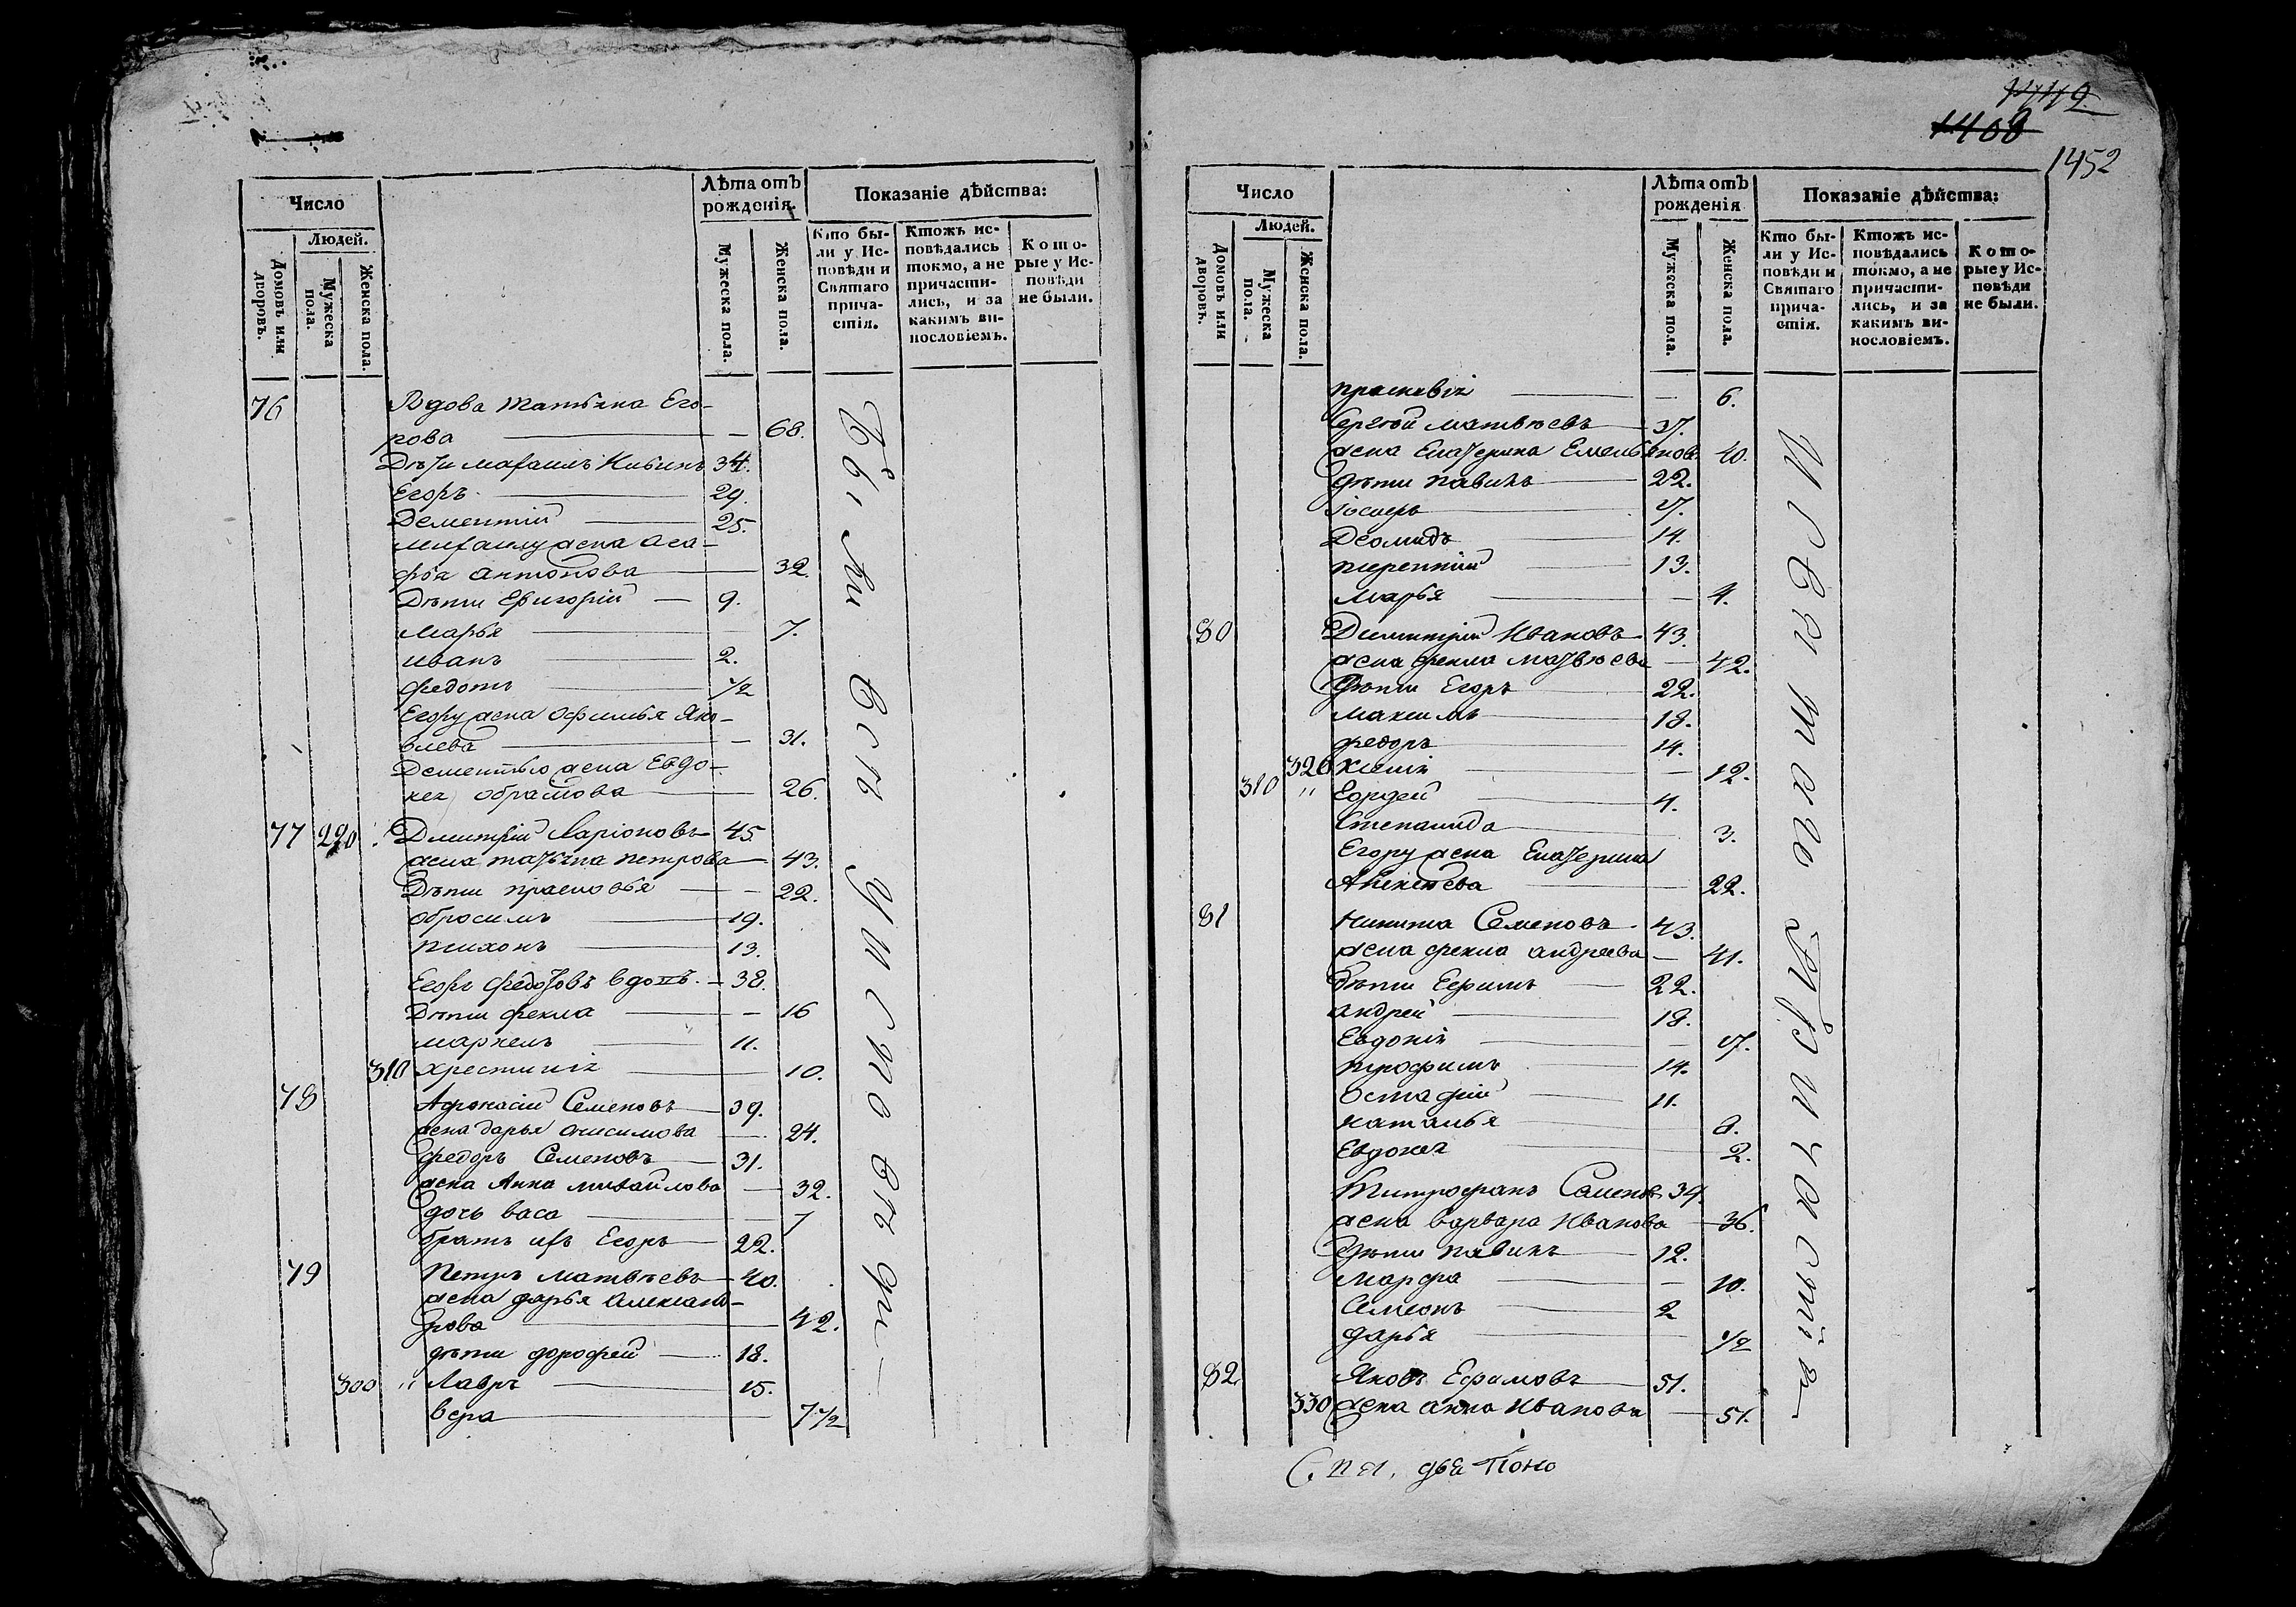 Число
Людей.
Домовъ или дворовъ.
Мужеска пола.
Женска пола.
Лѣта отъ рожденія.
Мужеска пола.
Женска пола.
Показаніе дѣйства:
Кто бы-
ли у Ис-
повѣди и
Святаго
прича-
стія.
Ктожъ ис-
повѣдались
токмо, а не
причасти-
лись, и за
какимъ ви-
нословіемъ.
Кото-
рые у Ис-
повѣди
не были.
76 Вдова Татьяна Его-
рова — 68.
Дѣти Михаилъ 34.
Егоръ 29.
Дементій 25.
Михаилу жена Ага-
фья Антонова 32.
Дѣти Григорій 9.
Марья 7.
Иванъ 2.
Федотъ 1/2
Егору жена Офимья Яко-
влева 31.
Дементью жена Евдо-
кея Обрамова 26.
77 290 Дмитрій Ларіоновъ 45.
жена Татьяна Петрова 43.
Дѣти Прасковья 22.
Обросимъ 19.
Тихонъ 13.
Егоръ Федотовъ вдовъ. 38.
Дѣти Фекла 16
Маркелъ 11.
310 Хрестинія 10.
78 Афонасій Семеновъ 39.
жена Дарья Онисимова 24.
Федоръ Семеновъ 31.
жена Анна Михайлова 32.
дочь Васа 7
братъ ихъ Егоръ 22.
79 Петръ Матвѣевъ 40.
жена Дарья Александ-
рова 42.
дѣти Дорофей 18.
300 " Лавръ 15.
Вера 7 1/2
Были въ
у исповѣди
1408
1452
Число
Людей.
Домовъ или дворовъ.
Мужеска пола.
Женска пола.
Лѣта отъ рожденія
Мужеска пола.
Женска пола.
Показаніе дѣйства:
Кто бы-
ли у Ис-
повѣди и
Святаго
прича-
стія.
Ктожъ ис-
повѣдались
токмо, а не
причасти-
лись, и за
какимъ ви-
нословіемъ.
Кото-
рые у Ис-
повѣди
не были.
Прасковія 6.
Сергѣй Матвѣевъ 37.
жена Екатерина Емельянова 40.
дѣти Павилъ 22.
Іосифъ 17.
Деомидъ 14.
Терентій 13.
Марья 4.
80 Димитрій Ивановъ 43.
жена Фекла Матвѣева 42.
Дѣти Егоръ 22.
Максимъ 18.
Федоръ 14.
320 Ксенія 12.
310 " Гордей 4.
Степанида 3.
Егору жена Екатерина
22.
81 Никита Семеновъ 43.
жена Фекла Андреева 41.
Дѣти Ефимъ 22.
Андрей 18.
Евдокія 17.
Трофимъ 14.
Остафій 11.
Наталья
Евдокея 2.
Митрофанъ Семеновъ 39.
жена Варвара Иванова 36.
дѣти Павилъ 12.
Марфа 10.
Семеонъ 2
Дарья 1/2
82 Яковъ Ефимовъ 51.
330 жена Анна Иванова 51.
И Святаго Причастія